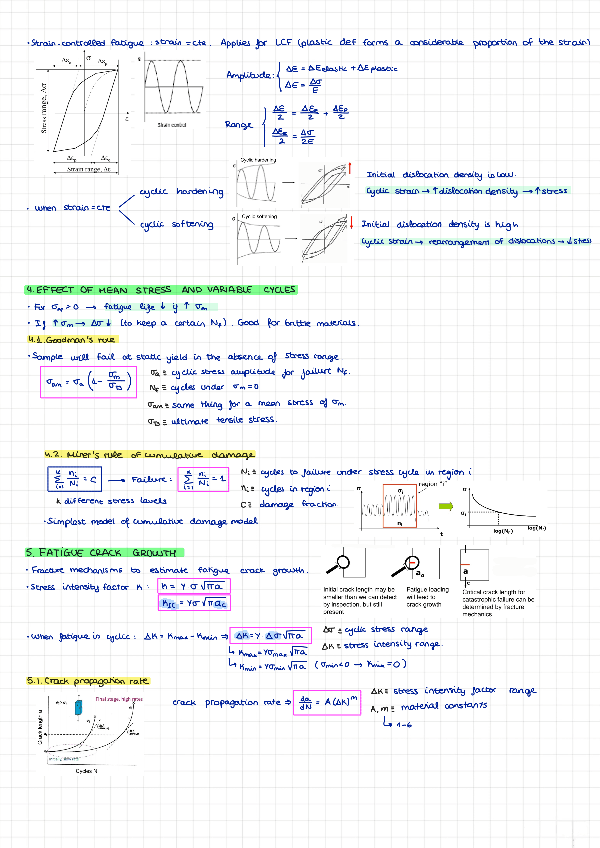 · Strain-controlled fatigue: strain = cte. Applies for LCF (plastic def forms a considerable proportion of the strain)
Amplitude: { ΔE = ΔEelastic + ΔEplastic
ΔE = Δσ/E
Range { ΔE/2 = ΔEe/2 + ΔEp/2
ΔEe/2 = Δσ/2E
Stress range, Δσ
Strain range, Δε
Strain control
· When strain = cte
cyclic hardening
Cyclic hardening
Initial dislocation density is low.
Cyclic strain → ↑ dislocation density → ↑ stress
cyclic softening
Cyclic softening
Initial dislocation density is high
Cyclic strain → rearrangement of dislocations → ↓ stress
4. EFFECT OF MEAN STRESS AND VARIABLE CYCLES
· For σm > 0 → fatigue life ↓ if ↑ σm
· If ↑ σm → Δσ ↓ (to keep a certain Nf). Good for brittle materials.
4.1. Goodman's rule
· Sample will fail at static yield in the absence of stress range
σam = σa (1 - σm/σB)
σa ≡ cyclic stress amplitude for failure Nf.
Nf ≡ cycles under σm = 0
σam ≡ same thing for a mean stress of σm.
σB ≡ ultimate tensile stress.
4.2. Miner's rule of cumulative damage
Σ ni/Ni = C → Failure: Σ ni/Ni = 1
k different stress levels
· Simplest model of cumulative damage model
Ni ≡ cycles to failure under stress cycle in region i
ni ≡ cycles in region i
C ≡ damage fraction
region "i"
σ
σi
ni
t
σ
σi
log(Nf)
log(N)
5. FATIGUE CRACK GROWTH
· Fracture mechanisms to estimate fatigue crack growth.
· Stress intensity factor K: K = Y σ √πa
KIC = Yσ √πac
a0
a
c
Initial crack length may be smaller than we can detect by inspection, but still present
Fatigue loading will lead to crack growth
Critical crack length for catastrophic failure can be determined by fracture mechanics
· When fatigue in cyclic: ΔK = Kmax - Kmin ⇒ ΔK = Y Δσ √πa
↳ Kmax = Yσmax √πa
↳ Kmin = Yσmin √πa (σmin < 0 → Kmin = 0)
Δσ ≡ cyclic stress range
ΔK ≡ stress intensity range.
5.1. Crack propagation rate
Final stage, high rates
Crack length a
Cycles N
crack propagation rate ⇒ da/dN = A(ΔK)^m
ΔK ≡ stress intensity factor range
A, m ≡ material constants
↳ 1-6